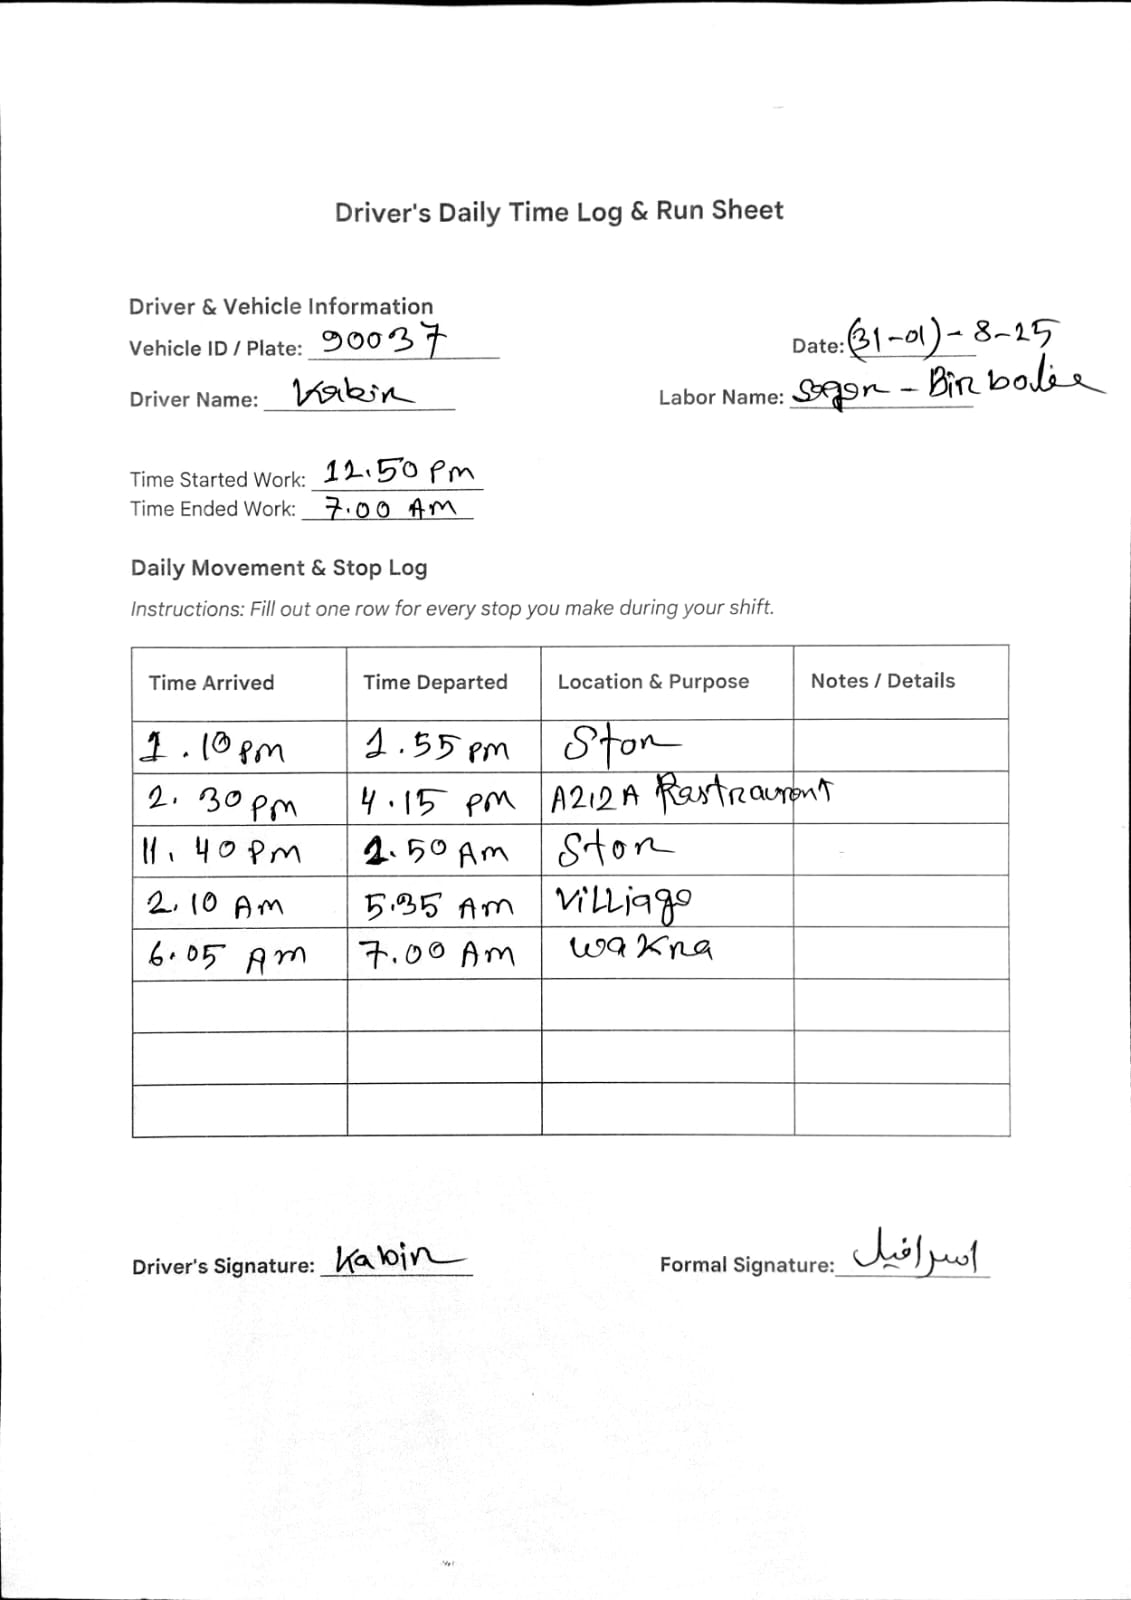 Driver's Daily Time Log & Run Sheet
Driver & Vehicle Information
Vehicle ID / Plate: 90037
Date: (31-01)-8-25
Driver Name: Kabin
Labor Name: Sagor - Bin bodie
Time Started Work: 12.50 Pm
Time Ended Work: 7.00 AM
Daily Movement & Stop Log
Instructions: Fill out one row for every stop you make during your shift.
Time Arrived Time Departed Location & Purpose Notes / Details
1.10 pm 1.55 pm Ston
2.30 pm 4.15 pm A212A Rastrauront
11.40 Pm 1.50 Am Ston
2.10 AM 5.35 AM Villiago
6.05 AM 7.00 AM wakna
Driver's Signature: Kabin
Formal Signature: اسرافیل